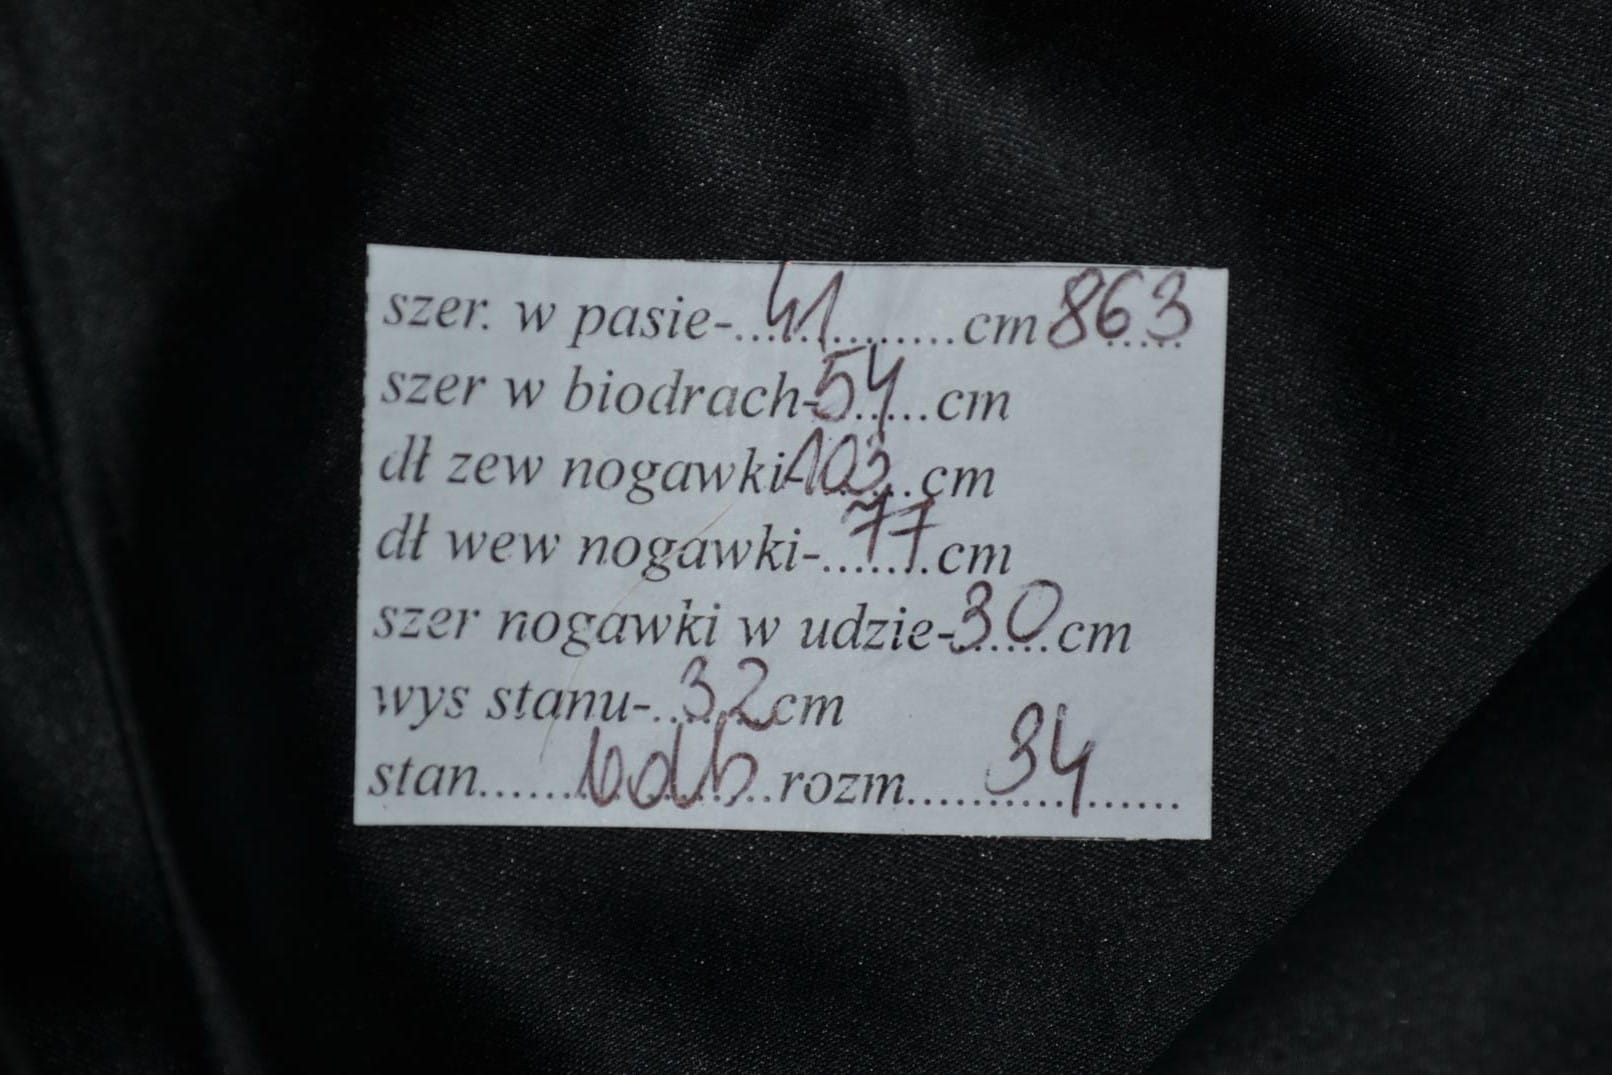 szer. w pasie-...41.........cm 863
szer w biodrach-54.....cm
dł zew nogawki-103...cm
dł wew nogawki-..77.cm
szer nogawki w udzie-30.cm
wys stanu-..32cm
stan...... bdb ..rozm.....34......